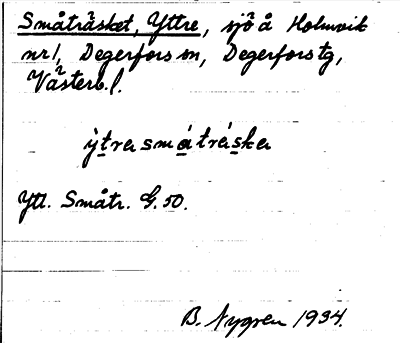 Småträsket, Yttre, sjö å Holmvik
nr 1, Degerfors sn, Degerfors tg,
Västerb. l.
ỳtrasmátráska
Ytt. Småtr. G. 50.
B. Nygren 1934.